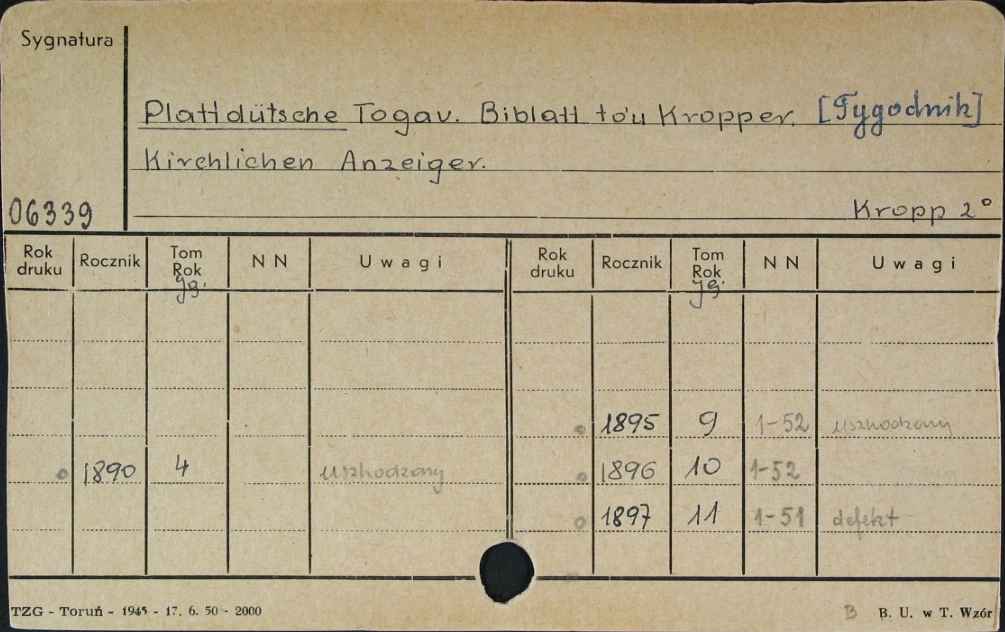 Sygnatura
Plattdütsche Togav. Biblatt to'u Kropper. [Tygodnik]
Kirchlichen Anzeiger.
06339
Kropp 2°
Rok druku Rocznik Tom Rok Jg. N N Uwagi Rok druku Rocznik Tom Rok Jg. N N Uwagi
1895 9 1-52 uszkodzony
1890 4 uszkodzony 1896 10 1-52
1897 11 1-51 defekt
TZG - Toruń - 1945 - 17. 6. 50 - 2000 B B. U. w T. Wzór